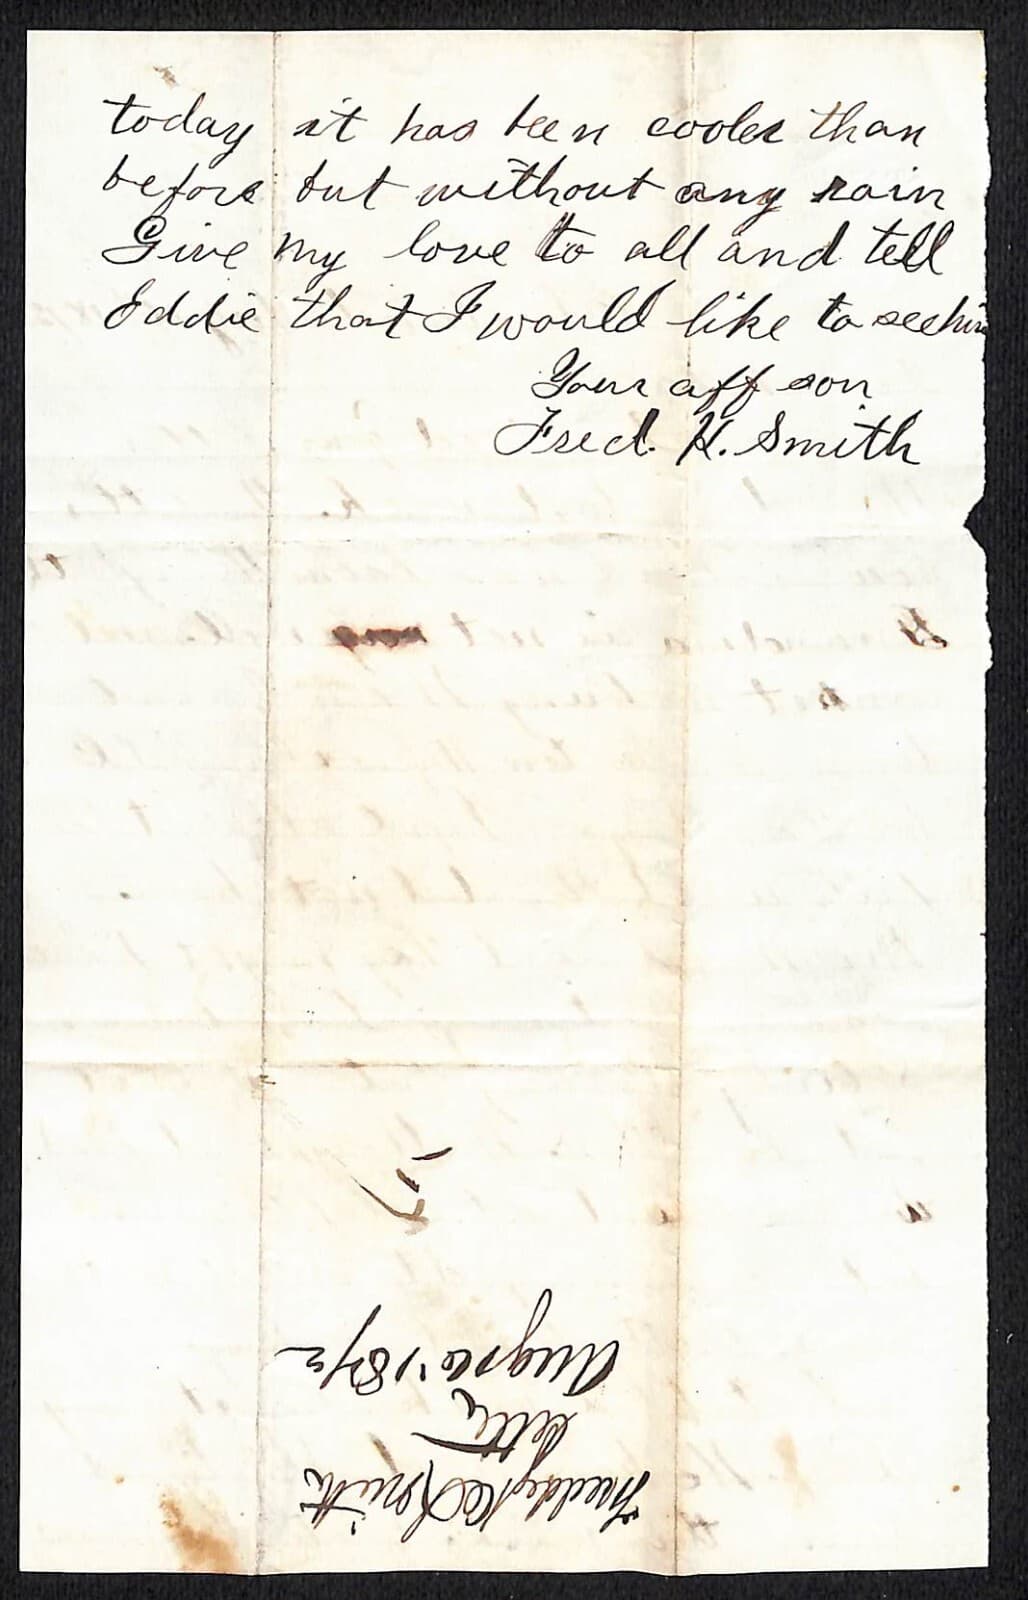 today it has been cooler than
before but without any rain
Give my love to all and tell
Eddie that I would like to see him
Your aff son
Fred. H. Smith
Freddy H Smith
letter
Aug 10 '1872